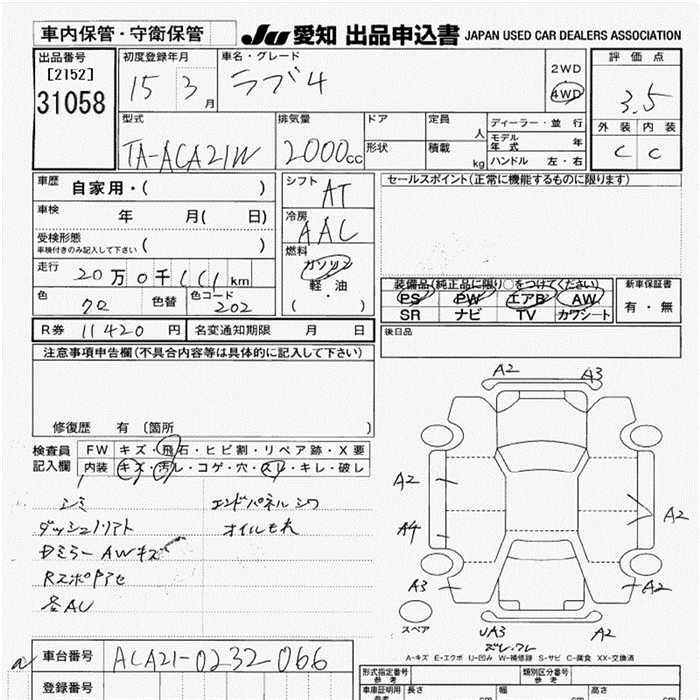 車内保管・守衛保管
JU 愛知 出品申込書 JAPAN USED CAR DEALERS ASSOCIATION
出品番号
[2152]
31058
初度登録年月
15 3月
車名・グレード
ラブ4
2WD
4WD
評価点
3.5
外装 内装
C C
型式
TA-ACA21W
排気量
2000cc
ドア
形状
定員 人
積載 kg
ディーラー・並行
モデル年式 年
ハンドル 左・右
車歴 自家用・( )
車検 年 月( 日)
受検形態
車検付きのみ記入して下さい ( )
走行 20万0千111km
色 70 色替 色コード 202
シフト AT
冷房 AAC
燃料
ガソリン
軽・油
( )
セールスポイント(正常に機能するものに限ります)
装備品(純正品に限り○をつけてください)
PS PW エアB AW
SR ナビ TV カワシート
新車保証書
有・無
R券 11420円 名変通知期限 月 日
後日品
注意事項申告欄(不具合内容等は具体的に記入して下さい)
修復歴 有〔箇所 〕
検査員記入欄
FW キズ・飛石・ヒビ割・リペア跡・X要
内装 キズ・汚レ・コゲ・穴・スレ・キレ・破レ
シミ
エンドパネルシワ
オイルもれ
AWキズ
各AU
A2 A3
A2
A4
A3
A2
A2
UA3 A2
スペア
ズレ.フレ
A-キズ E-エクボ U-凹み W-補修跡 S-サビ C-腐食 XX-交換済
車台番号 ACA21-0232066
登録番号
形式指定番号
参考
類別区分番号
参考
車庫証明用
参考
長さ
幅
高さ
cm
cm
cm